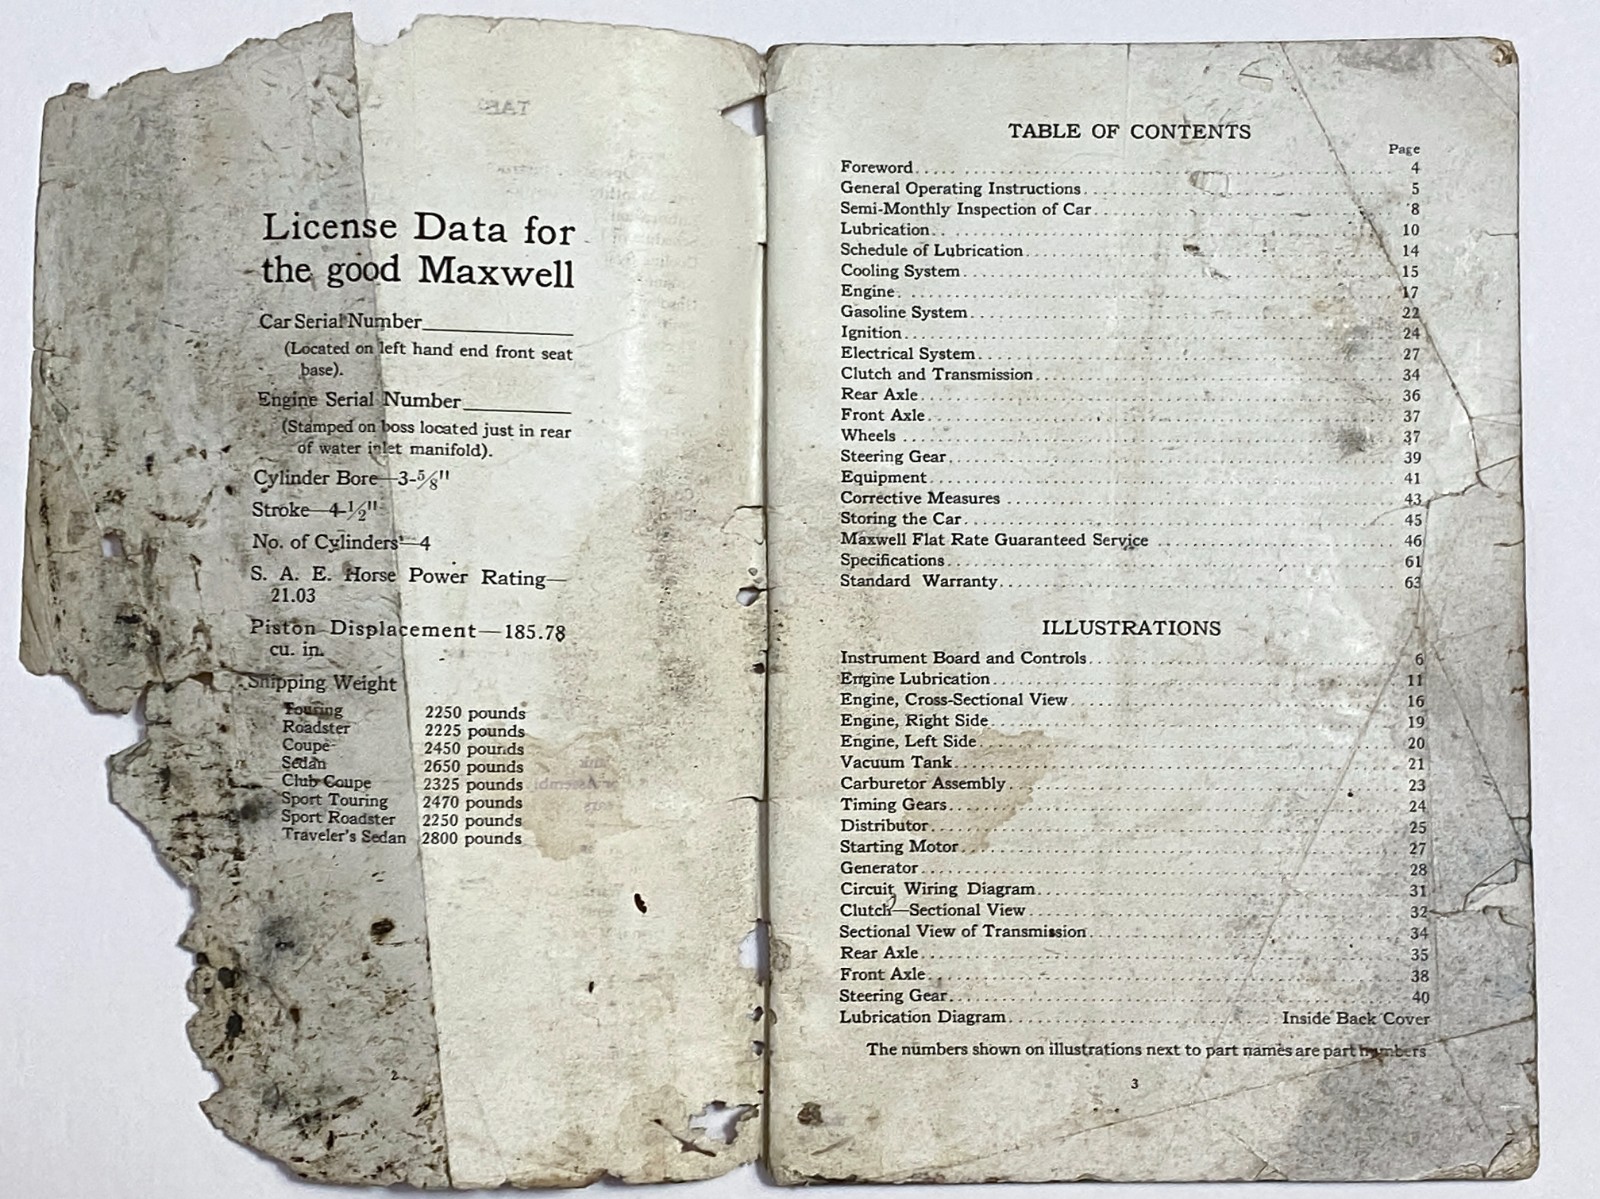 License Data for
the good Maxwell
Car Serial Number
(Located on left hand end front seat
base).
Engine Serial Number
(Stamped on boss located just in rear
of water inlet manifold).
Cylinder Bore—3-5/8"
Stroke—4-1/2"
No. of Cylinders—4
S. A. E. Horse Power Rating—
21.03
Piston Displacement—185.78
cu. in.
Shipping Weight
Touring 2250 pounds
Roadster 2225 pounds
Coupe 2450 pounds
Sedan 2650 pounds
Club Coupe 2325 pounds
Sport Touring 2470 pounds
Sport Roadster 2250 pounds
Traveler's Sedan 2800 pounds
2
TABLE OF CONTENTS
Page
Foreword 4
General Operating Instructions 5
Semi-Monthly Inspection of Car 8
Lubrication 10
Schedule of Lubrication 14
Cooling System 15
Engine 17
Gasoline System 22
Ignition 24
Electrical System 27
Clutch and Transmission 34
Rear Axle 36
Front Axle 37
Wheels 37
Steering Gear 39
Equipment 41
Corrective Measures 43
Storing the Car 45
Maxwell Flat Rate Guaranteed Service 46
Specifications 61
Standard Warranty 63
ILLUSTRATIONS
Instrument Board and Controls 6
Engine Lubrication 11
Engine, Cross-Sectional View 16
Engine, Right Side 19
Engine, Left Side 20
Vacuum Tank 21
Carburetor Assembly 23
Timing Gears 24
Distributor 25
Starting Motor 27
Generator 28
Circuit Wiring Diagram 31
Clutch—Sectional View 32
Sectional View of Transmission 34
Rear Axle 35
Front Axle 38
Steering Gear 40
Lubrication Diagram Inside Back Cover
The numbers shown on illustrations next to part names are part numbers
3